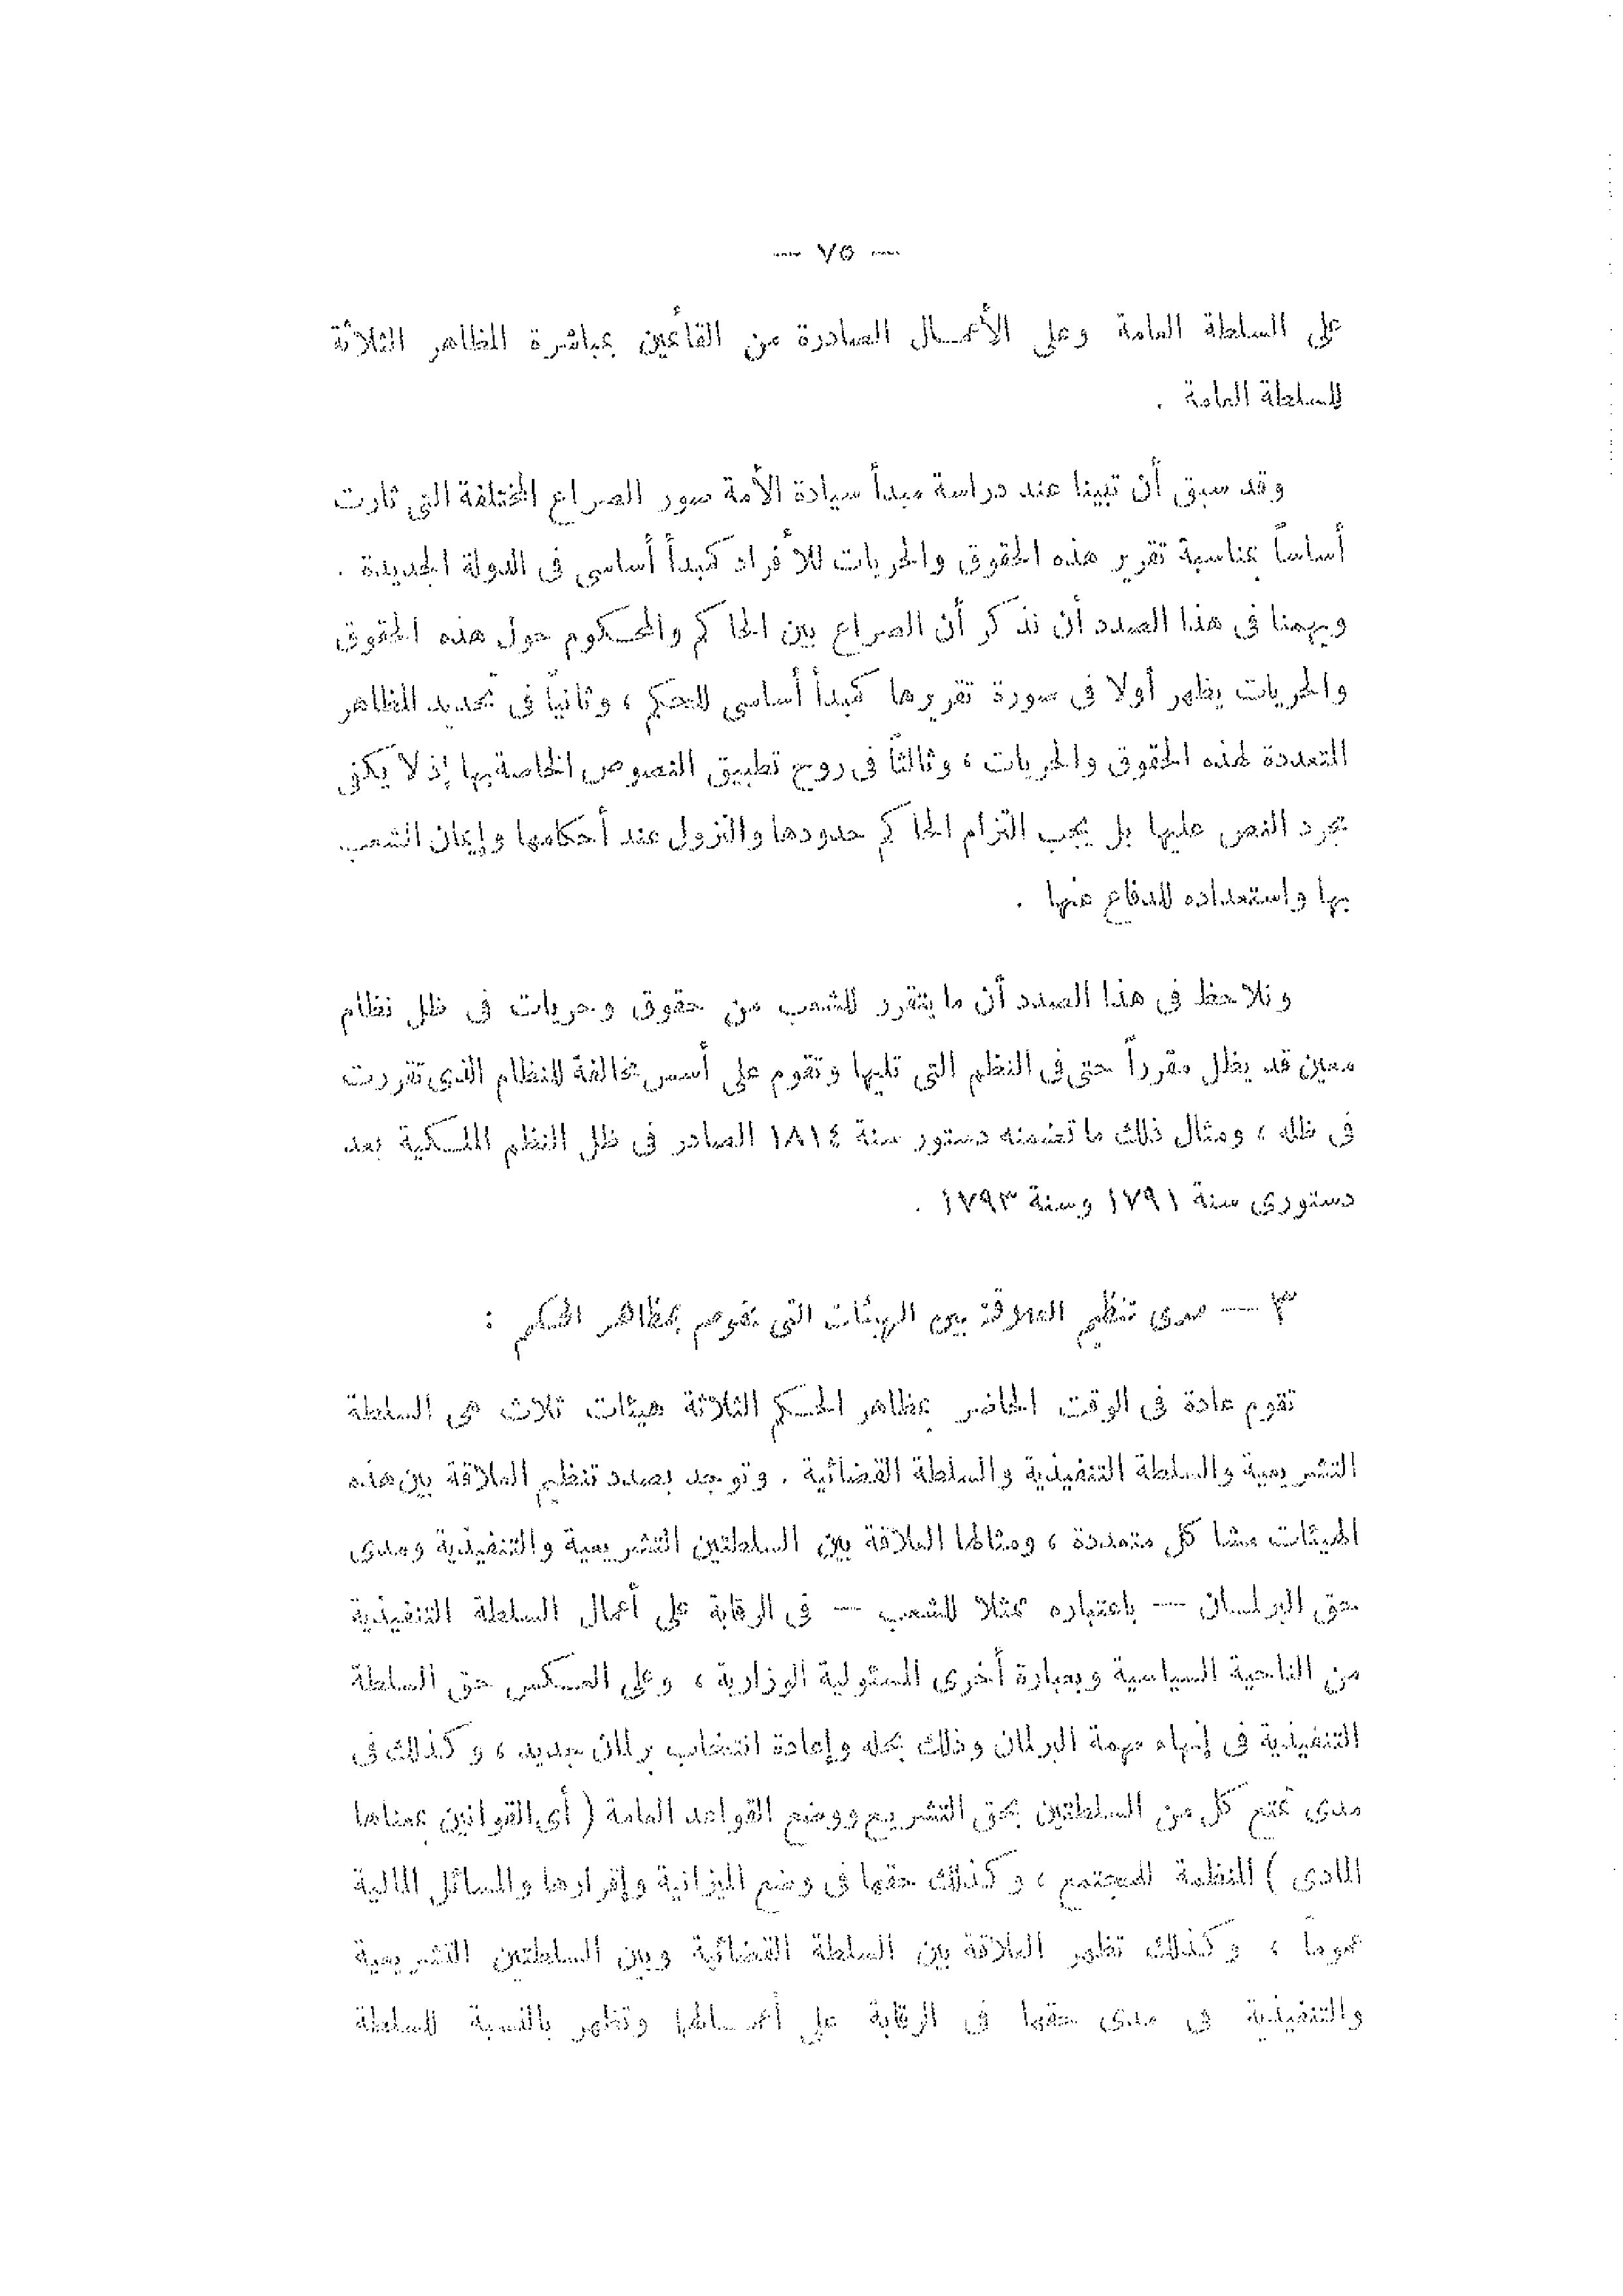 — ٧٥ —
على السلطة العامة وعلى الأعمال الصادرة من القائمين بمباشرة المظاهر الثلاثة
للسلطة العامة .
وقد سبق أن تبينا عند دراسة مبدأ سيادة الأمة صور الصراع المختلفة التى ثارت
أساساً بمناسبة تقرير هذه الحقوق والحريات للأفراد كمبدأ أساسى فى الدولة الجديدة .
ويهمنا فى هذا الصدد أن نذكر أن الصراع بين الحاكم والمحكوم حول هذه الحقوق
والحريات يظهر أولا فى صورة تقريرها كمبدأ أساسى للحكم ، وثانياً فى تحديد المظاهر
المتعددة لهذه الحقوق والحريات ، وثالثاً فى روح تطبيق النصوص الخاصة بها إذ لا يكفى
مجرد النص عليها بل يجب التزام الحاكم حدودها والنزول عند أحكامها وإيمان الشعب
بها واستعداده للدفاع عنها .
ونلاحظ فى هذا الصدد أن ما يتقرر للشعب من حقوق وحريات فى ظل نظام
معين قد يظل مقرراً حتى فى النظم التى تليها وتقوم على أسس مخالفة للنظام الذى تقررت
فى ظله ، ومثال ذلك ما تضمنه دستور سنة ١٨١٤ الصادر فى ظل النظم الملكية بعد
دستورى سنة ١٧٩١ وسنة ١٧٩٣ .
٣ — مدى تنظيم العلاقة بين الهيئات التى تقوم بمظاهر الحكم :
تقوم عادة فى الوقت الحاضر بمظاهر الحكم الثلاثة هيئات ثلاث هى السلطة
التشريعية والسلطة التنفيذية والسلطة القضائية . وتوجد بصدد تنظيم العلاقة بين هذه
الهيئات مشاكل متعددة ، ومثالها العلاقة بين السلطتين التشريعية والتنفيذية ومدى
حق البرلمان — باعتباره ممثلا للشعب — فى الرقابة على أعمال السلطة التنفيذية
من الناحية السياسية وبعبارة أخرى المسئولية الوزارية ، وعلى العكس حق السلطة
التنفيذية فى إنهاء مهمة البرلمان وذلك بحله وإعادة انتخاب برلمان جديد ، وكذلك فى
مدى تمتع كل من السلطتين بحق التشريع ووضع القواعد العامة ( أى القوانين بمعناها
المادى ) المنظمة للمجتمع ، وكذلك حقهما فى وضع الميزانية وإقرارها والمسائل المالية
عموماً ، وكذلك تظهر العلاقة بين السلطة القضائية وبين السلطتين التشريعية
والتنفيذية فى مدى حقها فى الرقابة على أعمالها وتظهر بالنسبة للسلطة